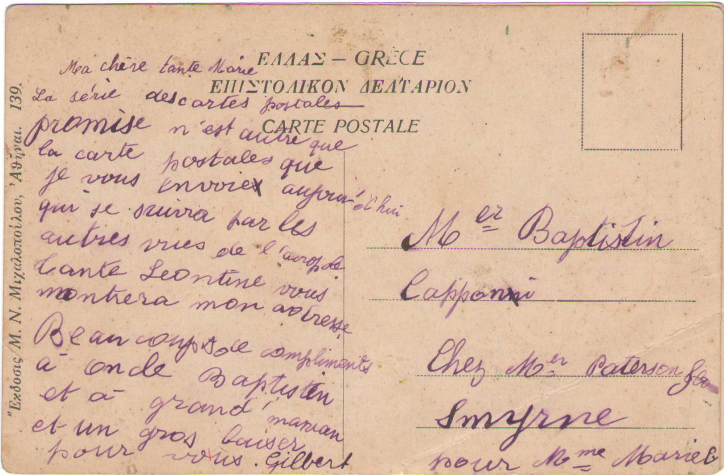 ΕΛΛΑΣ – GRÈCE
ΕΠΙΣΤΟΛΙΚΟΝ ΔΕΛΤΑΡΙΟΝ
CARTE POSTALE
Ma chère tante Marie
La série des cartes postales
promise n'est autre que
la carte postales que
je vous envoie aujourd'hui
qui se suivra par les
autres vues de l'acropole
tante Leontine vous
montrera mon adresse
Beaucoups de compliments
à oncle Baptistin
et à grand'maman
et un gros baiser
pour vous. Gilbert
Mer Baptistin
Capponi
Chez Mer Paterson
Smyrne
pour Mme Marie
Ἔκδοσις Μ. Ν. Μιχαλοπούλου, Ἀθῆναι. 139.